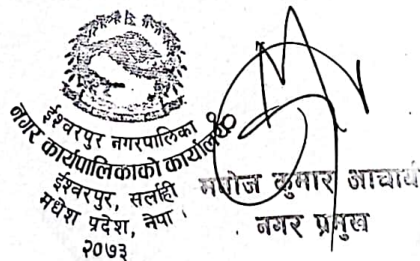 ईश्वरपुर नगरपालिका
नगर कार्यपालिकाको कार्यालय
ईश्वरपुर, सर्लाही
मधेश प्रदेश, नेपा
२०७३
मनोज कुमार आचार्य
नगर प्रमुख